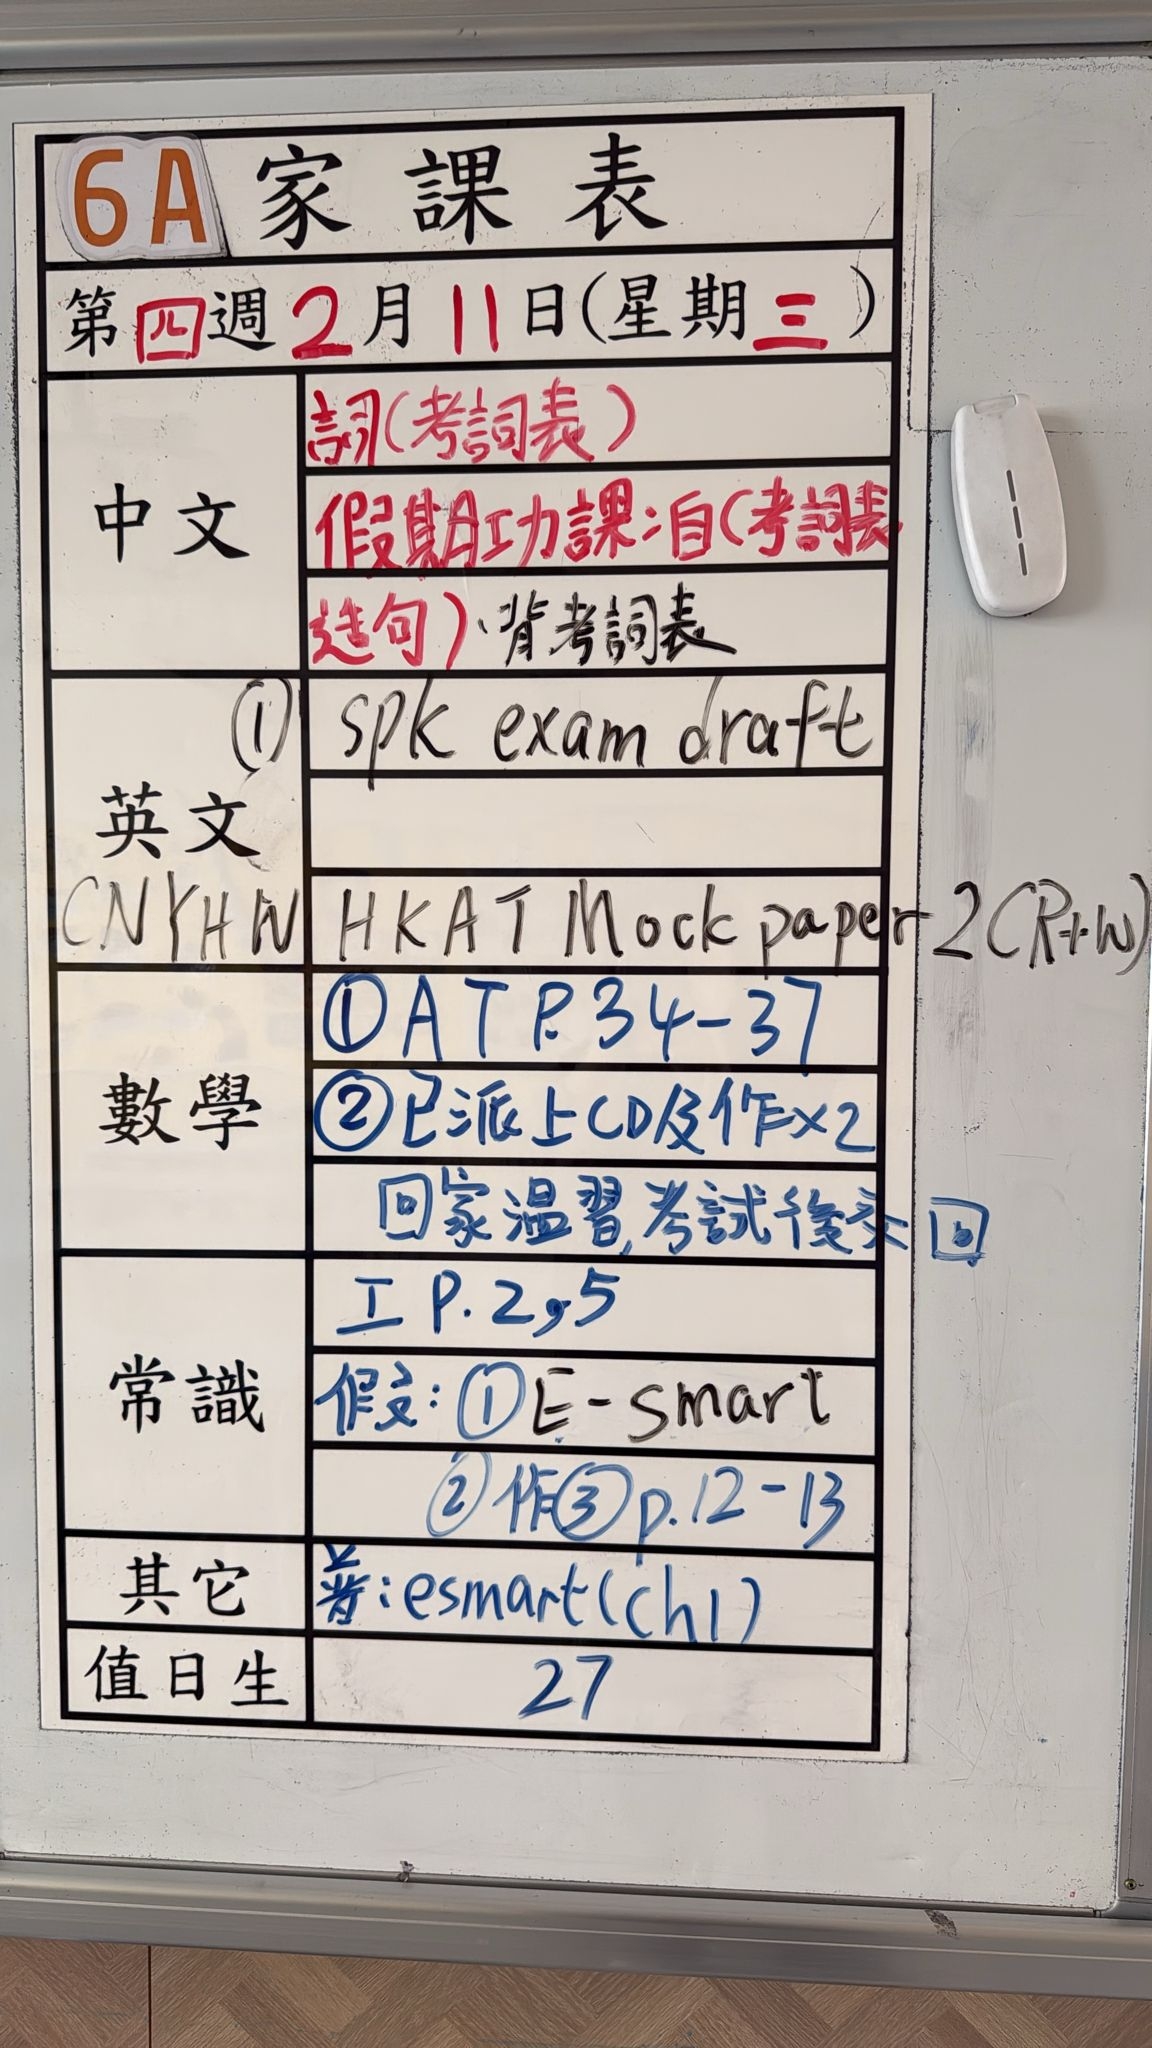 6A 家課表
第四週2月11日(星期三)
中文
詞(考詞表)
假期功課:自(考詞表
造句)、背考詞表
英文
① spk exam draft
CNYHW HKAT Mock paper 2(R+W)
數學
①AT P.34-37
②已派上CD及作×2
回家温習,考試後交回
常識
工 P.2,5
假交:①E-smart
②作③p.12-13
其它
普:esmart(ch1)
值日生
27